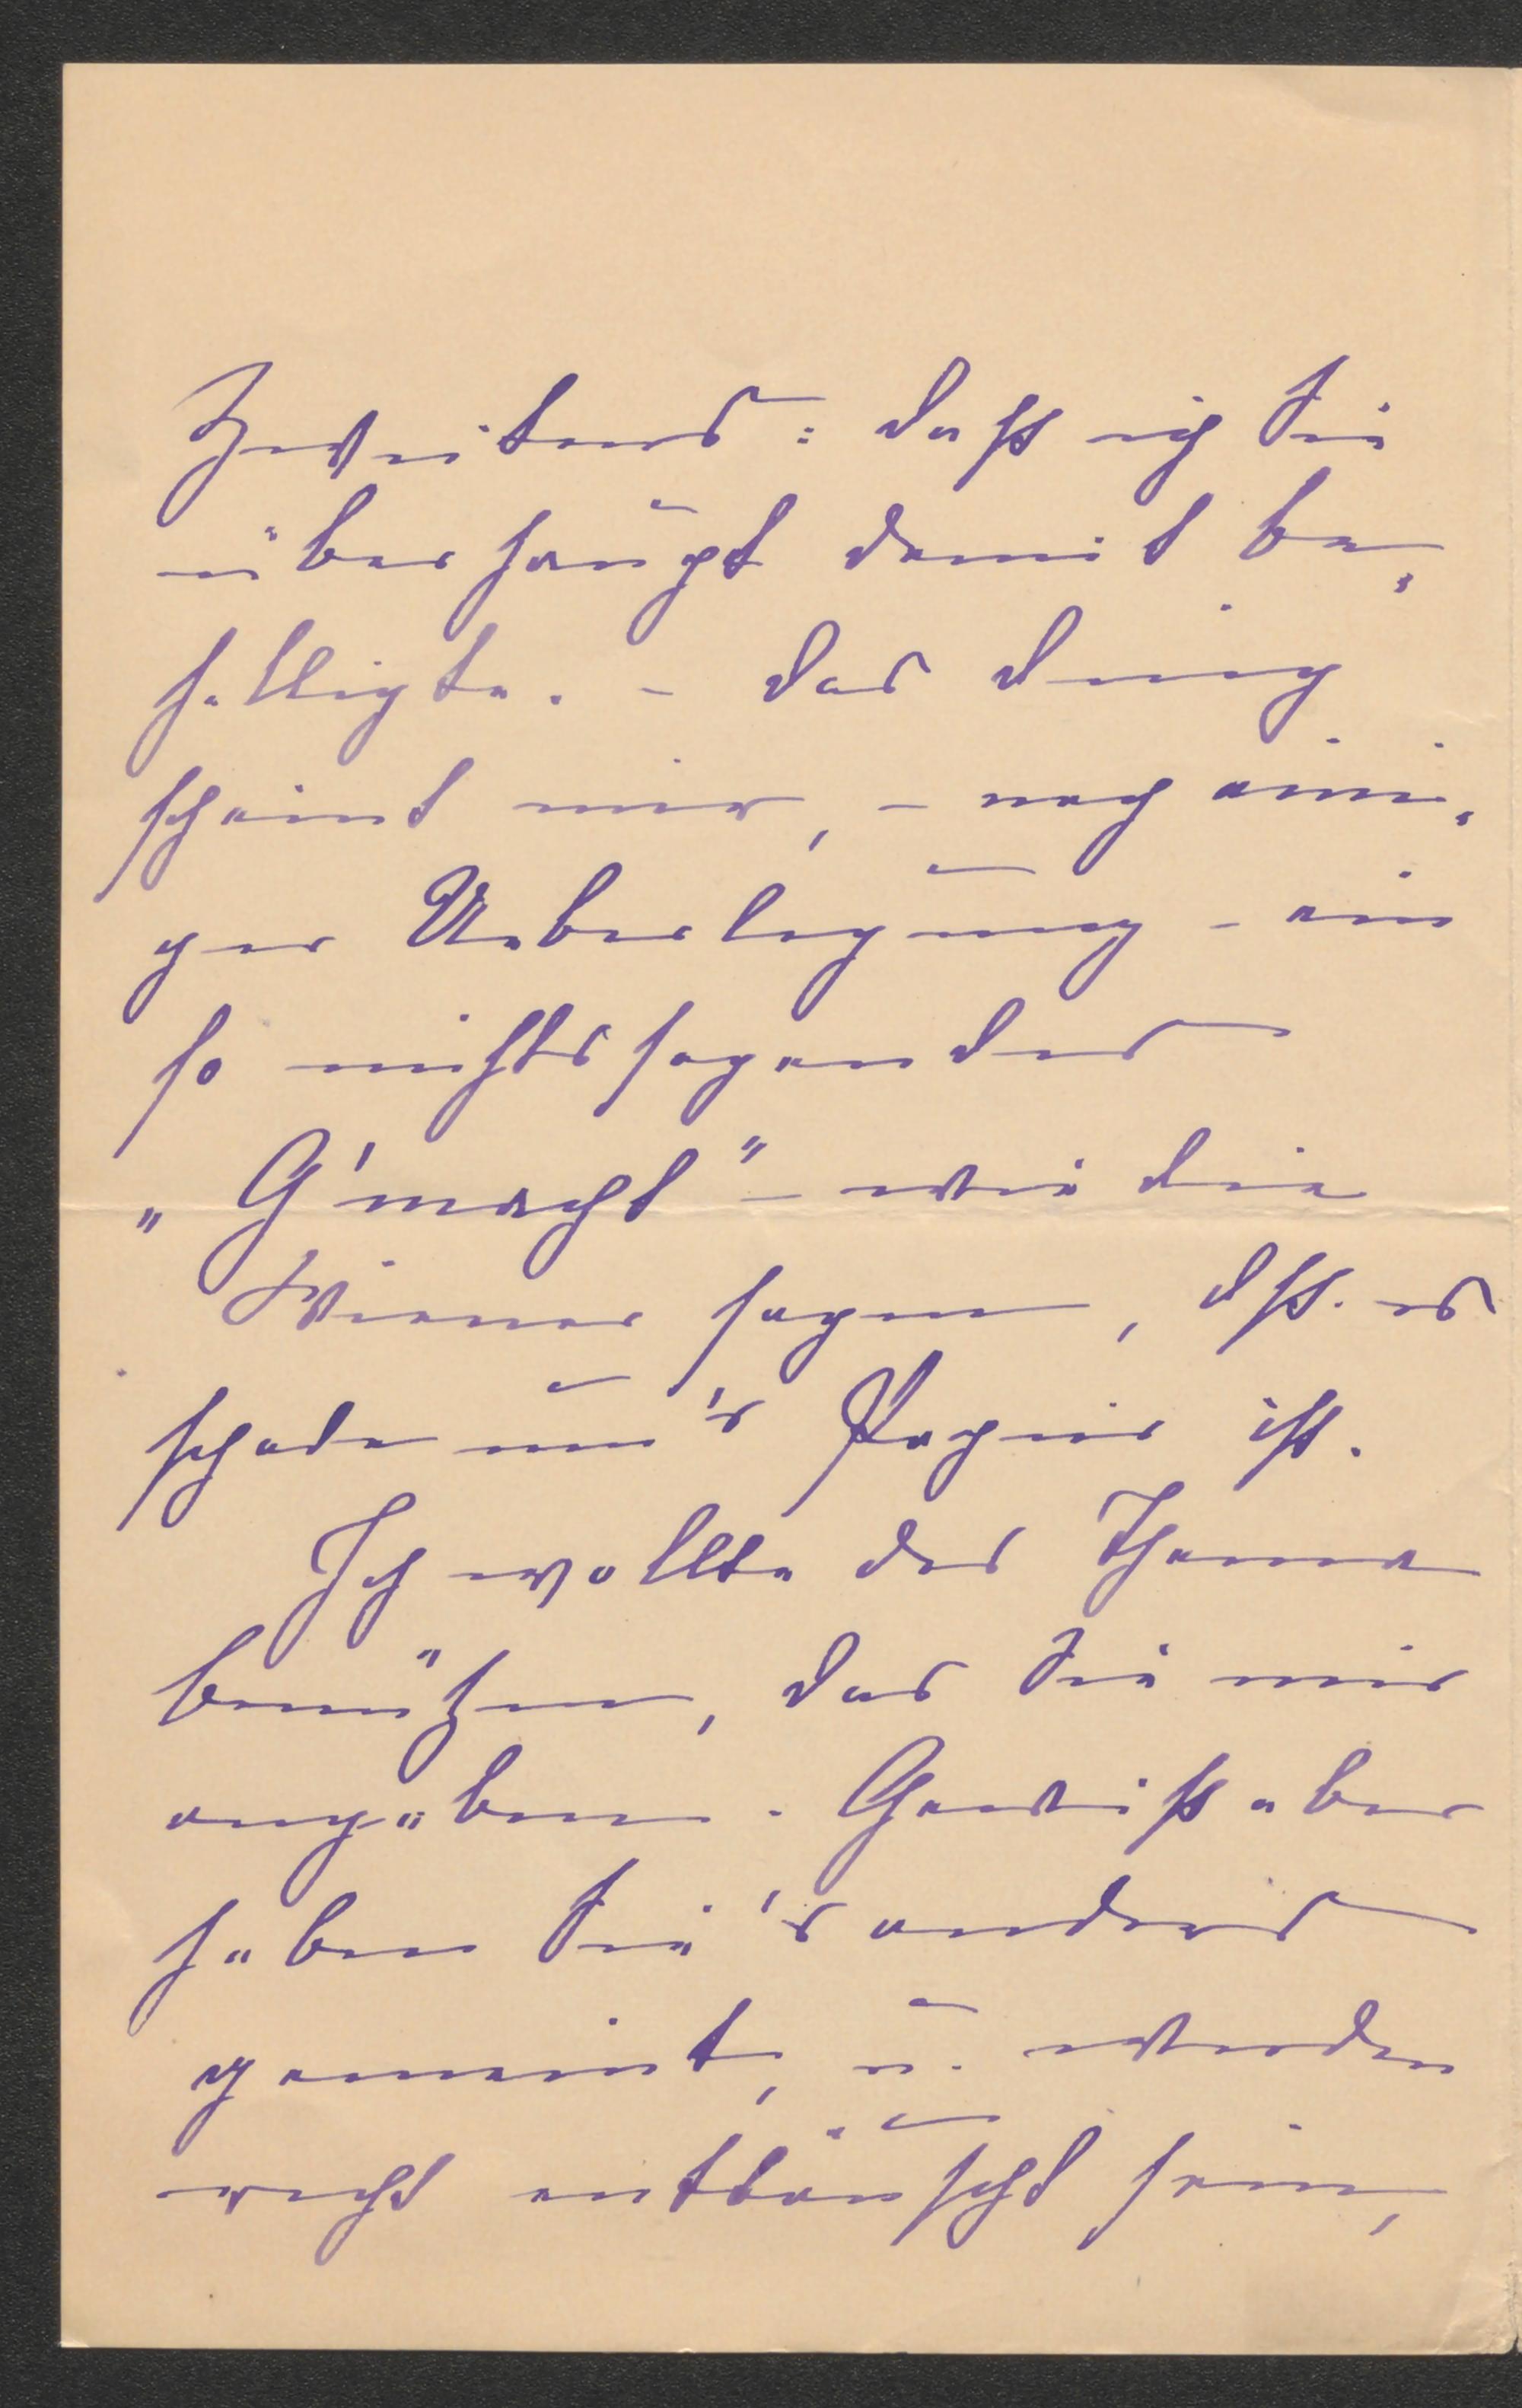 Zweitens: daß ich Sie
überhaupt damit be-
helligte. – Das Ding
scheint mir, – nach eini-
ger Ueberlegung – ein
so nichtssagendes
„G'macht" – wie die
Wiener sagen, dß. es
schade um's Papier ist.
Ich wollte das Thema
benützen, das Sie mir
angaben. Gewiß aber
haben Sie's anders
gemeint, u. werden
recht enttäuscht sein,